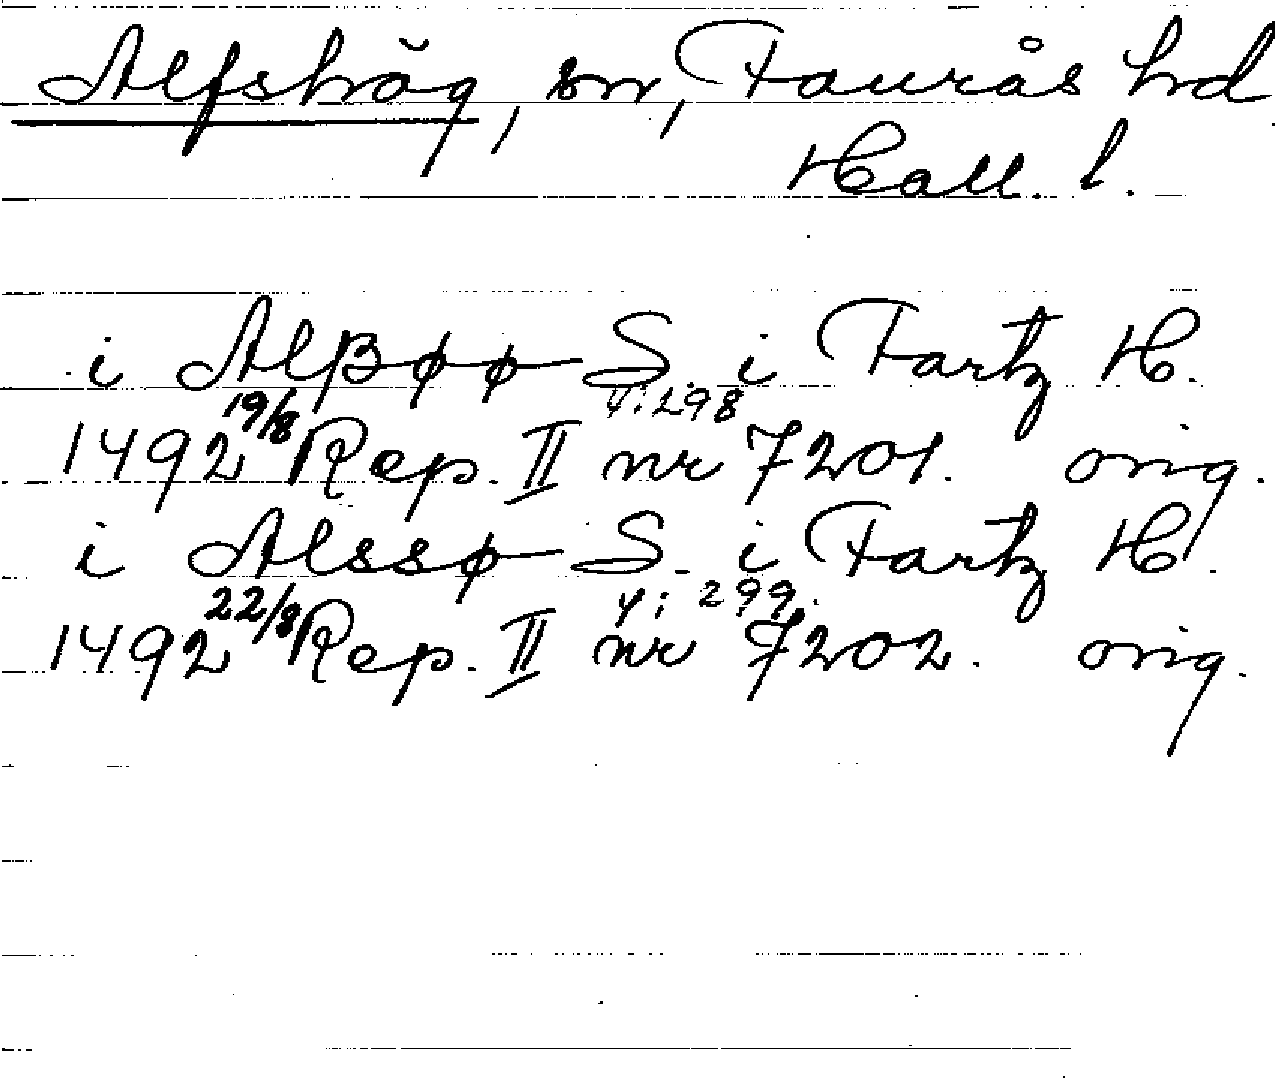 Alfshög, sn, Faurås hd
Hall. l.
i Alßøø S. i Fartz H.
1492 19/8 Rep. II nr 7201. orig.
4:298
i Alssø S. i Fartz H.
1492 22/8 Rep. II nr 7202. orig.
4:299.